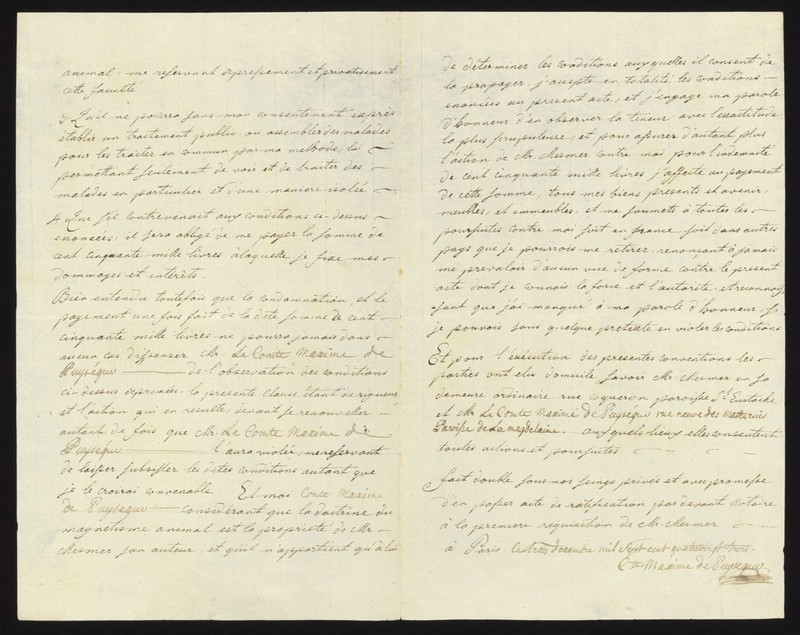 animal. me reservant expressement et privativement
cette faculté.
3 Quil ne pourra sans mon consentement exprès
établir un traitement public, ou assembler des malades
pour les traiter en commun par ma methode, lui
permettant seulement de voir et de traiter des
malades en particulier et d'une maniere isolée
4 Que s'il contrevenoit aux conditions ci-dessus
enoncées, il sera obligé de me payer la somme de
cent cinquante mille livres à laquelle je fixe mes
dommages et interêts.
Bien entendu toutefois que la condamnation et le
payement une fois fait de la dite somme de cent
cinquante mille livres ne pourra jamais dans
aucun cas dispenser Mr. Le Comte Maxime de
Puysegur de l'observation des conditions
ci-dessus exprimées. la presente clause étant de rigueur
et l'action qui en resulte, devant se renouveller
autant de fois que Mr. Le Comte Maxime de
Puysegur l'aura violée, me reservant
de laisser subsister les dites conditions autant que
je le croirai convenable. Et moi Comte Maxime
de Puysegur considérant que la doctrine du
magnetisme animal est la propriété de Mr.
Mesmer son auteur, et qu'il n'appartient qu'à lui
de déterminer les conditions auxquelles il consent de
la propager, j'accepte en totalité les conditions
enoncées au present acte, et j'engage ma parole
d'honneur d'en observer la teneur avec l'exactitude
la plus scrupuleuse, et pour assurer d'autant plus
l'action de Mr. Mesmer contre moi pour l'indemnité
de cent cinquante mille livres j'affecte au payement
de cette somme, tous mes biens presents et avenir
meubles, et immeubles, et me soumets à toutes les
poursuites contre moi soit en france, soit dans autres
pays que je pourrois me retirer, renonçant à jamais
me prevaloir d'aucun vice de forme contre le present
acte dont je connois la force et l'autorité. et reconnois
sant que j'ai manqué à ma parole d'honneur, si
je pouvois sous quelque pretexte en violer les conditions
Et pour l'éxécution des presentes conventions les
parties ont elu domicile savoir Mr. Mesmer en sa
demeure ordinaire rue coqueron paroisse St. Eustache
et Mr Le Comte Maxime de Puysegur rue neuve des mathurins
Paroisse de La magdelaine. auxquels lieux elles consentent
toutes actions et poursuites
fait double sous nos seings privés et avec promesse
d'en passer acte de ratification par devant Notaire
à la premiere requisition de Mr. Mesmer
à Paris. le trois decembre mil sept cent quatre vingt trois.
Cte Maxime de Puysegur